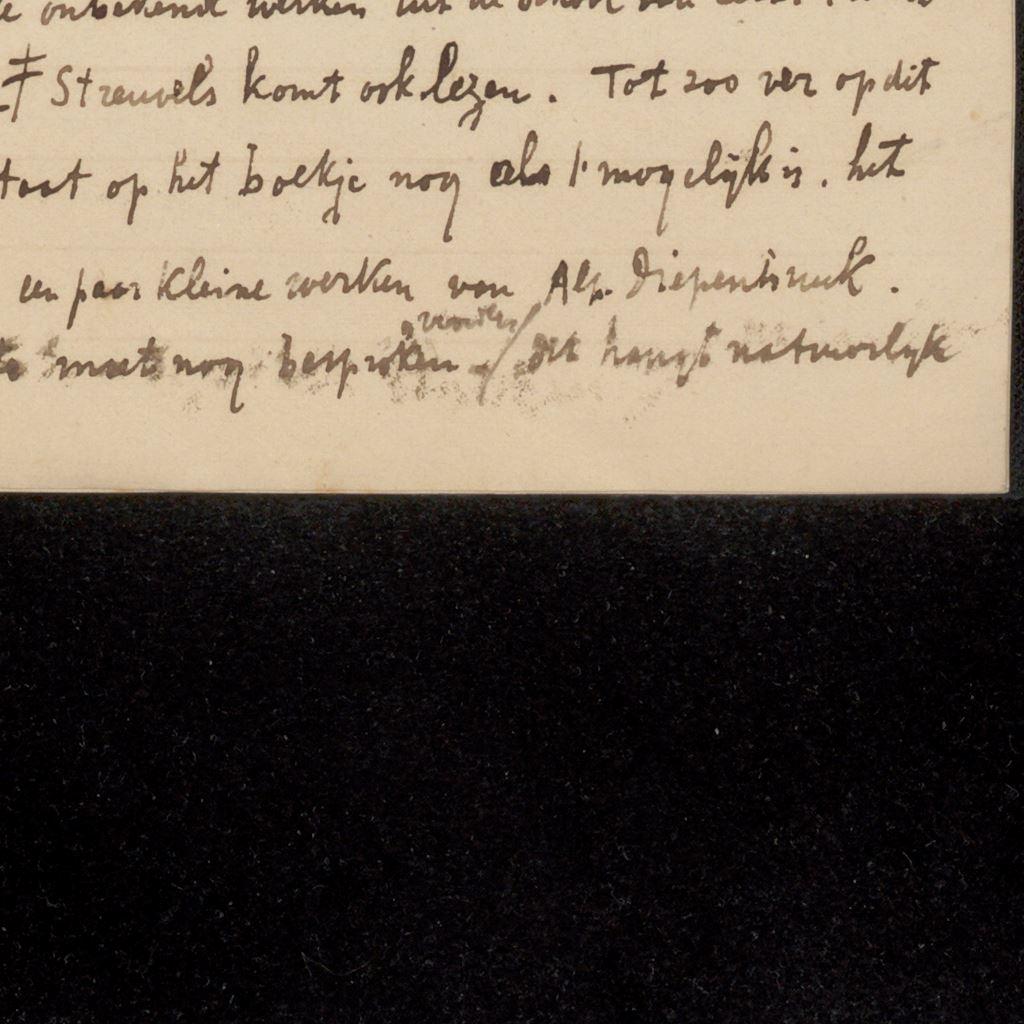 onbekende werken uit de school van
Streuvels komt ook lezen. Tot zoo ver op dit
staat op het boekje nog als 't mogelijk is. het
een paar kleine werken van Alp. Diepenbruck.
moet nog besproken worden / dit hangt natuurlijk